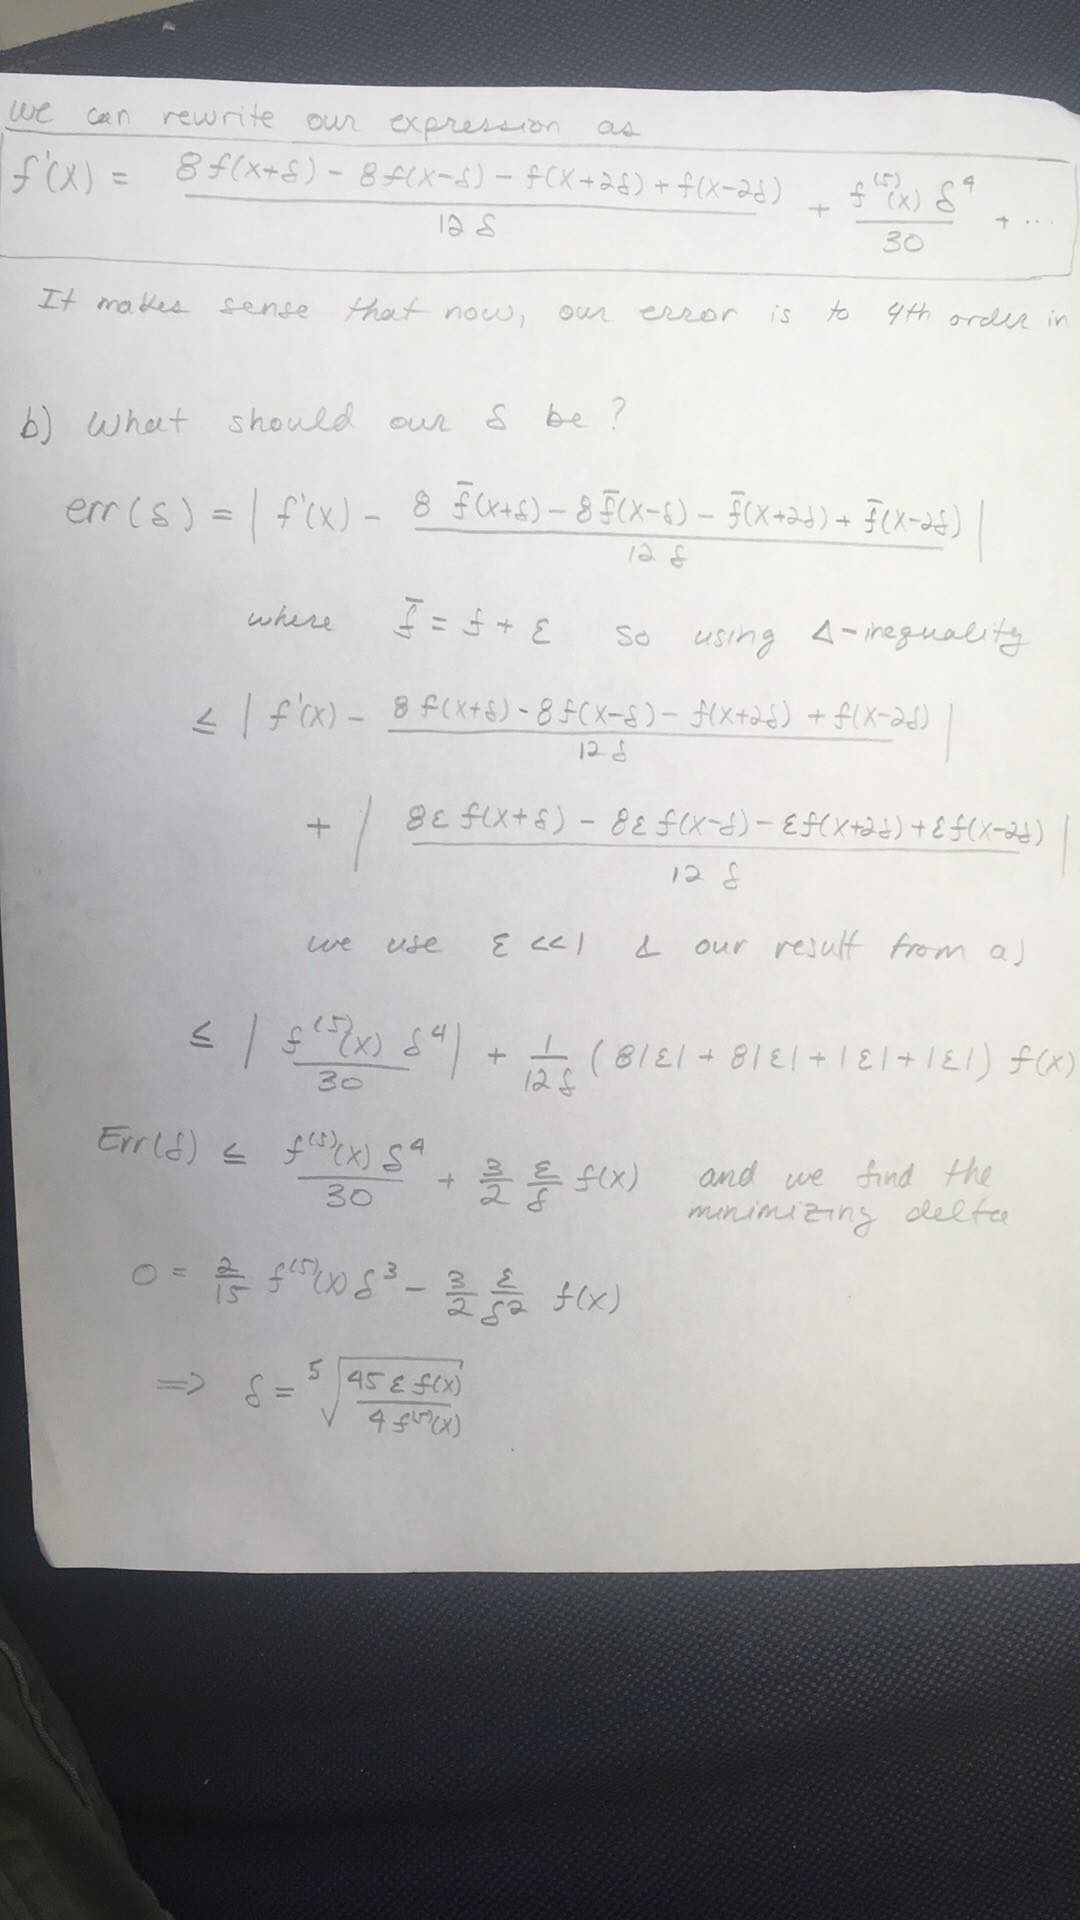 we can rewrite our expression as
f'(x) = \frac{8f(x+δ) - 8f(x-δ) - f(x+2δ) + f(x-2δ)}{12δ} + \frac{f^{(5)}(x) δ^4}{30} + ...
It makes sense that now, our error is to 4th order in
b) What should our δ be?
err(δ) = | f'(x) - \frac{8 f̄(x+δ) - 8f̄(x-δ) - f̄(x+2δ) + f̄(x-2δ)}{12δ} |
where f̄ = f + ε so using Δ-inequality
≤ | f'(x) - \frac{8f(x+δ) - 8f(x-δ) - f(x+2δ) + f(x-2δ)}{12δ} |
+ | \frac{8ε f(x+δ) - 8ε f(x-δ) - εf(x+2δ) + εf(x-2δ)}{12δ} |
we use ε <<1 & our result from a)
≤ | \frac{f^{(5)}(x) δ^4}{30} | + \frac{1}{12δ} (8|ε| + 8|ε| + |ε| + |ε|) f(x)
Err(δ) ≤ \frac{f^{(5)}(x) δ^4}{30} + \frac{3}{2} \frac{ε}{δ} f(x) and we find the
minimizing delta
0 = \frac{2}{15} f^{(5)}(x) δ^3 - \frac{3}{2} \frac{ε}{δ^2} f(x)
=> δ = \sqrt[5]{\frac{45 ε f(x)}{4 f^{(5)}(x)}}